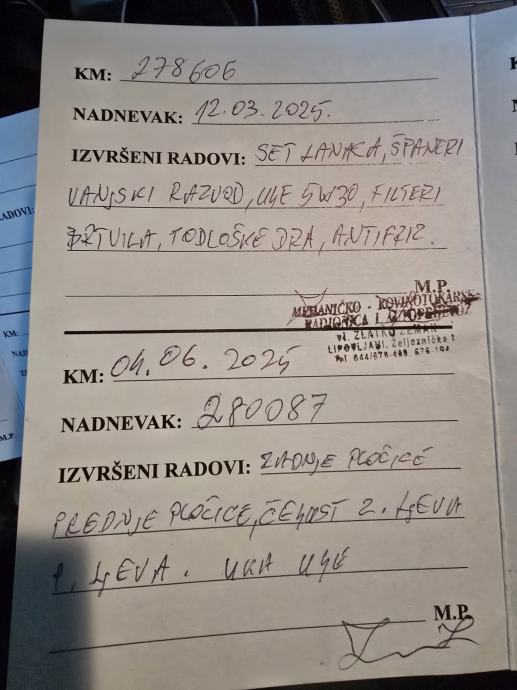 KM: 278606
NADNEVAK: 12.03.2025.
IZVRŠENI RADOVI: SET LANACA, ŠPANERI
VANJSKI RAZVOD, ULJE 5W30, FILTERI
BRTVILA, PODLOŠKE DRA, ANTIFRIZ.
M.P.
MEHANIČKO - KOVINOTOKARSKA
RADIONICA I AUTOPRIJEVOZ
vl. ZLATKO ZEMAN
LIPOVLJANI, Željeznička 1
KM: 04.06. 2025
NADNEVAK: 280087
IZVRŠENI RADOVI: ZADNJE PLOČICE
PREDNJE PLOČICE, ČELJUST Z. LJEVA
P. LJEVA. ULJE
M.P.
ADOVI:
KM:
M.P.